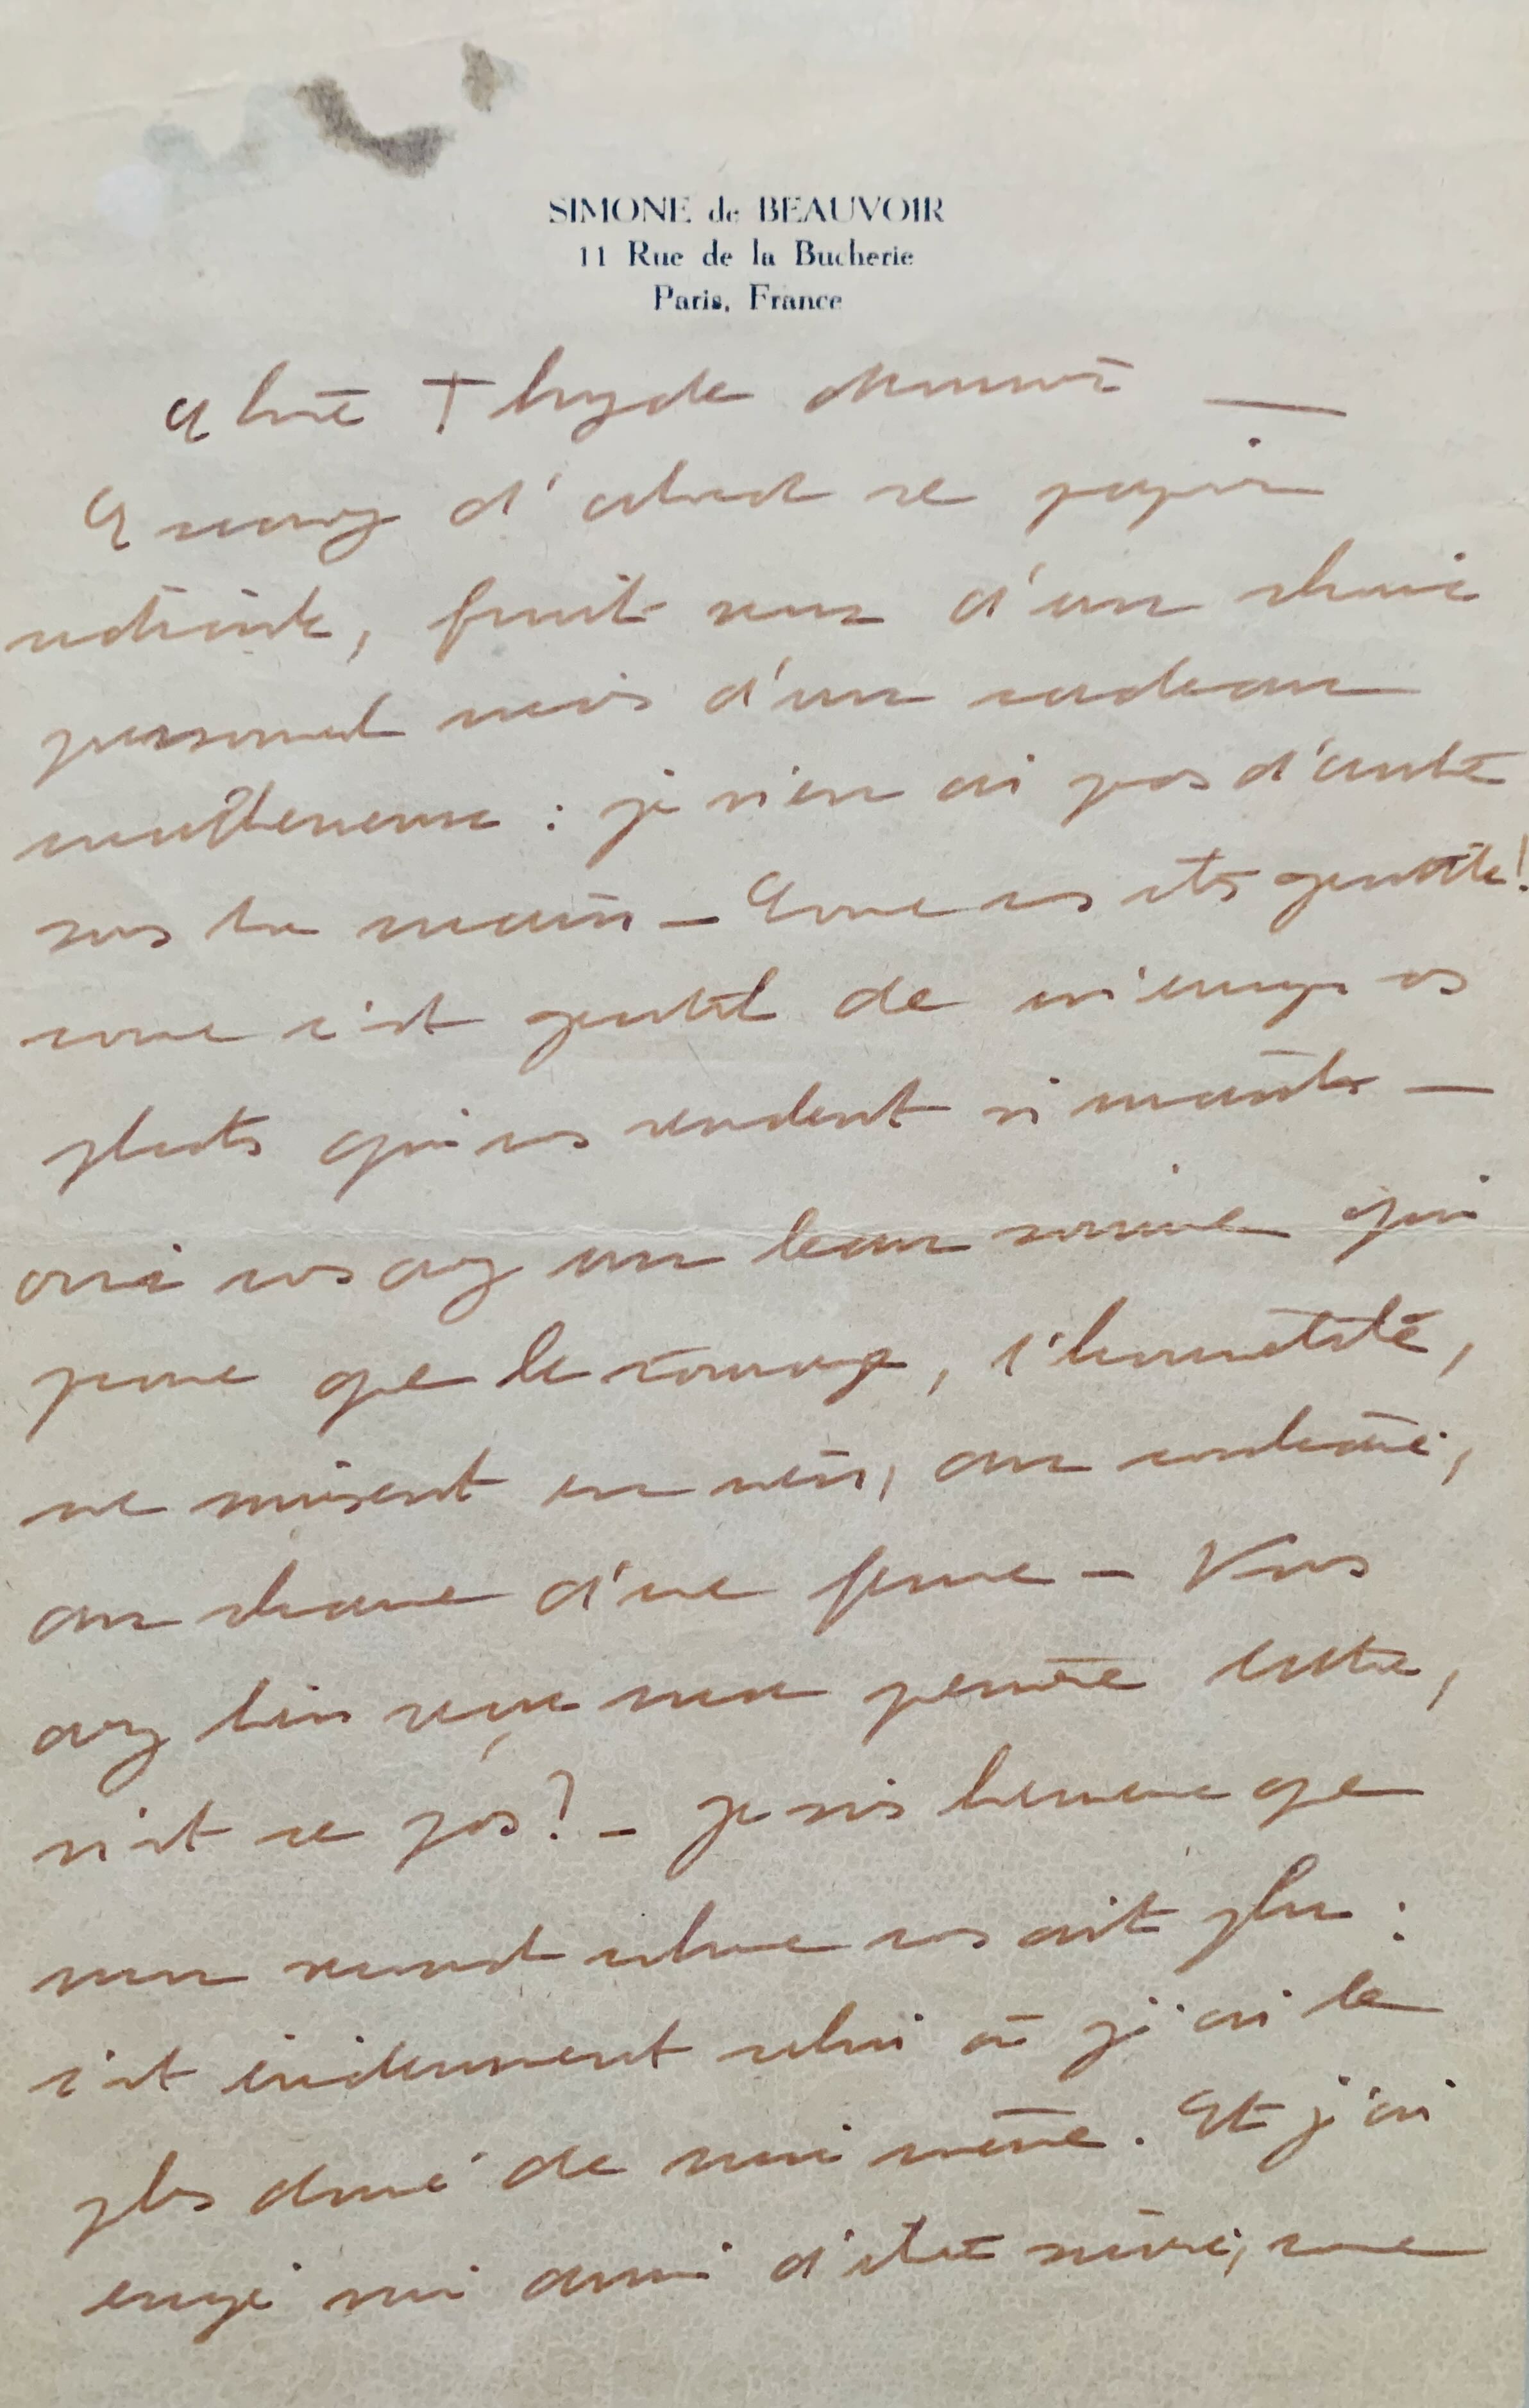 SIMONE de BEAUVOIR
11 Rue de la Bucherie
Paris, France
Chère Thyde Monnier —
Excusez d'abord ce papier
, fruit non d'un choix
personnel mais d'un cadeau
malheureux : je n'en ai pas d'autre
sous la main — Comme vs êtes gentille!
comme c'est gentil de m'envoyer ces
photos qui vs rendent si vivante —
oui vos avez un beau sourire qui
prouve que le courage, l'honnêteté,
ne nuisent en rien, au contraire,
au charme d'une femme — Vous
avez bien reçu ma première lettre,
n'est ce pas? — Je suis heureuse que
mon second volume vs ait plu :
c'est évidemment celui où j'ai le
plus donné de moi même. Et j'ai
essayé moi aussi d'être sincère, comme